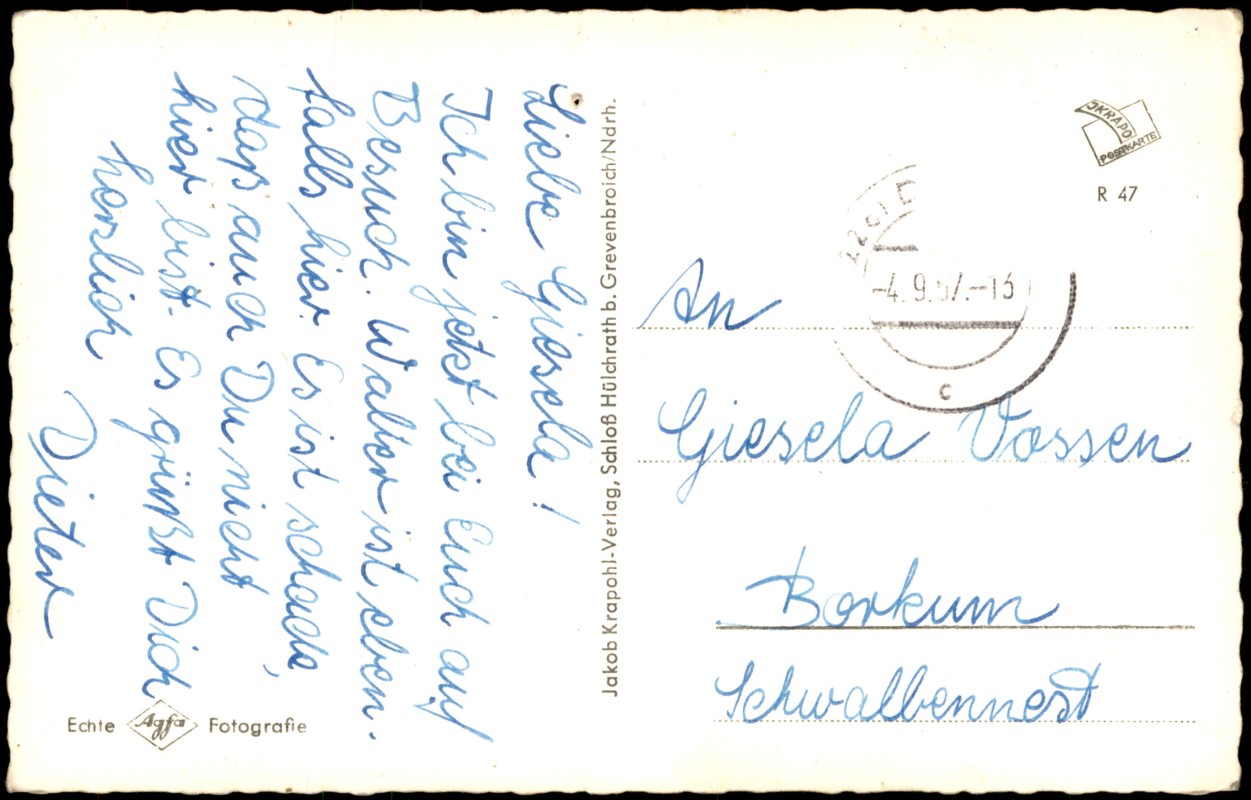 Liebe Giesela!
Ich bin jetzt bei Euch auf
Besuch. Walter ist eben-
falls hier. Es ist schade,
daß auch Du nicht
hier bist. Es grüßt Dich
herzlich
Dieter
Echte Agfa Fotografie
Jakob Krapohl-Verlag, Schloß Hülchrath b. Grevenbroich/Ndrh.
JKRAPO
POSTKARTE
R 47
-4.9.57.-13
c
An
Giesela Vossen
Borkum
Schwalbennest